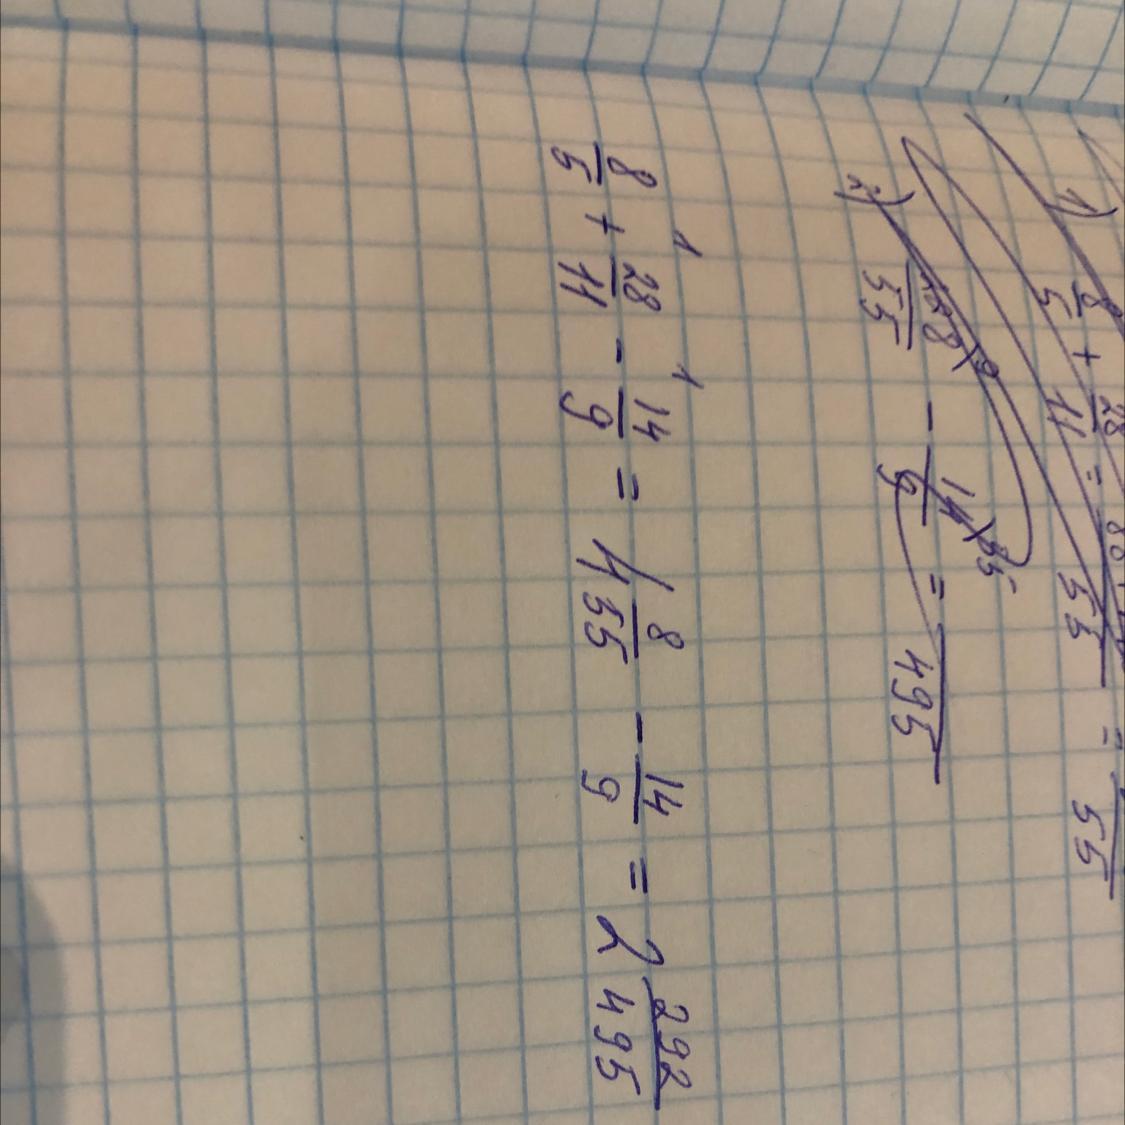 1) 8/5 + 28/11 = 55 = 55
2) 55 - 14/9 = 495
1 1
8/5 + 28/11 - 14/9 = 4 8/55 - 14/9 = 2 292/495